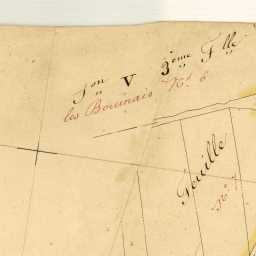 Son V 3ème Flle
les Bouinais No 6
Feuille
No 7